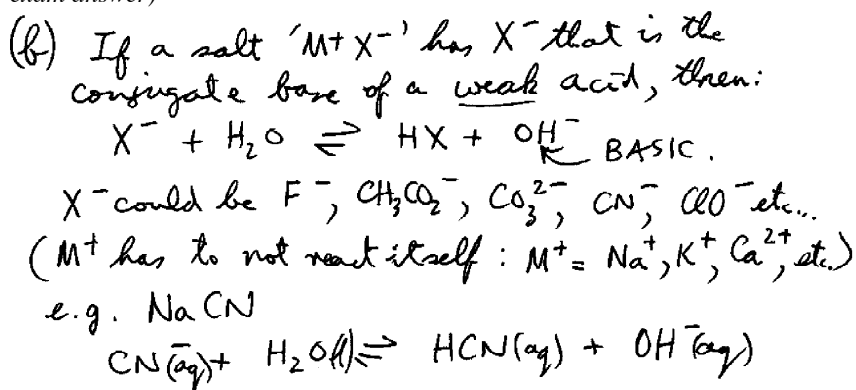 exam answer)
(b) If a salt 'M+ X-' has X⁻ that is the
conjugate base of a weak acid, then:
X⁻ + H₂O ⇌ HX + OH⁻ BASIC.
X⁻ could be F⁻, CH₃CO₂⁻, CO₃²⁻, CN⁻, ClO⁻ etc...
(M⁺ has to not react itself : M⁺ = Na⁺, K⁺, Ca²⁺, etc.)
e.g. NaCN
CN⁻(aq) + H₂O(l) ⇌ HCN(aq) + OH⁻(aq)